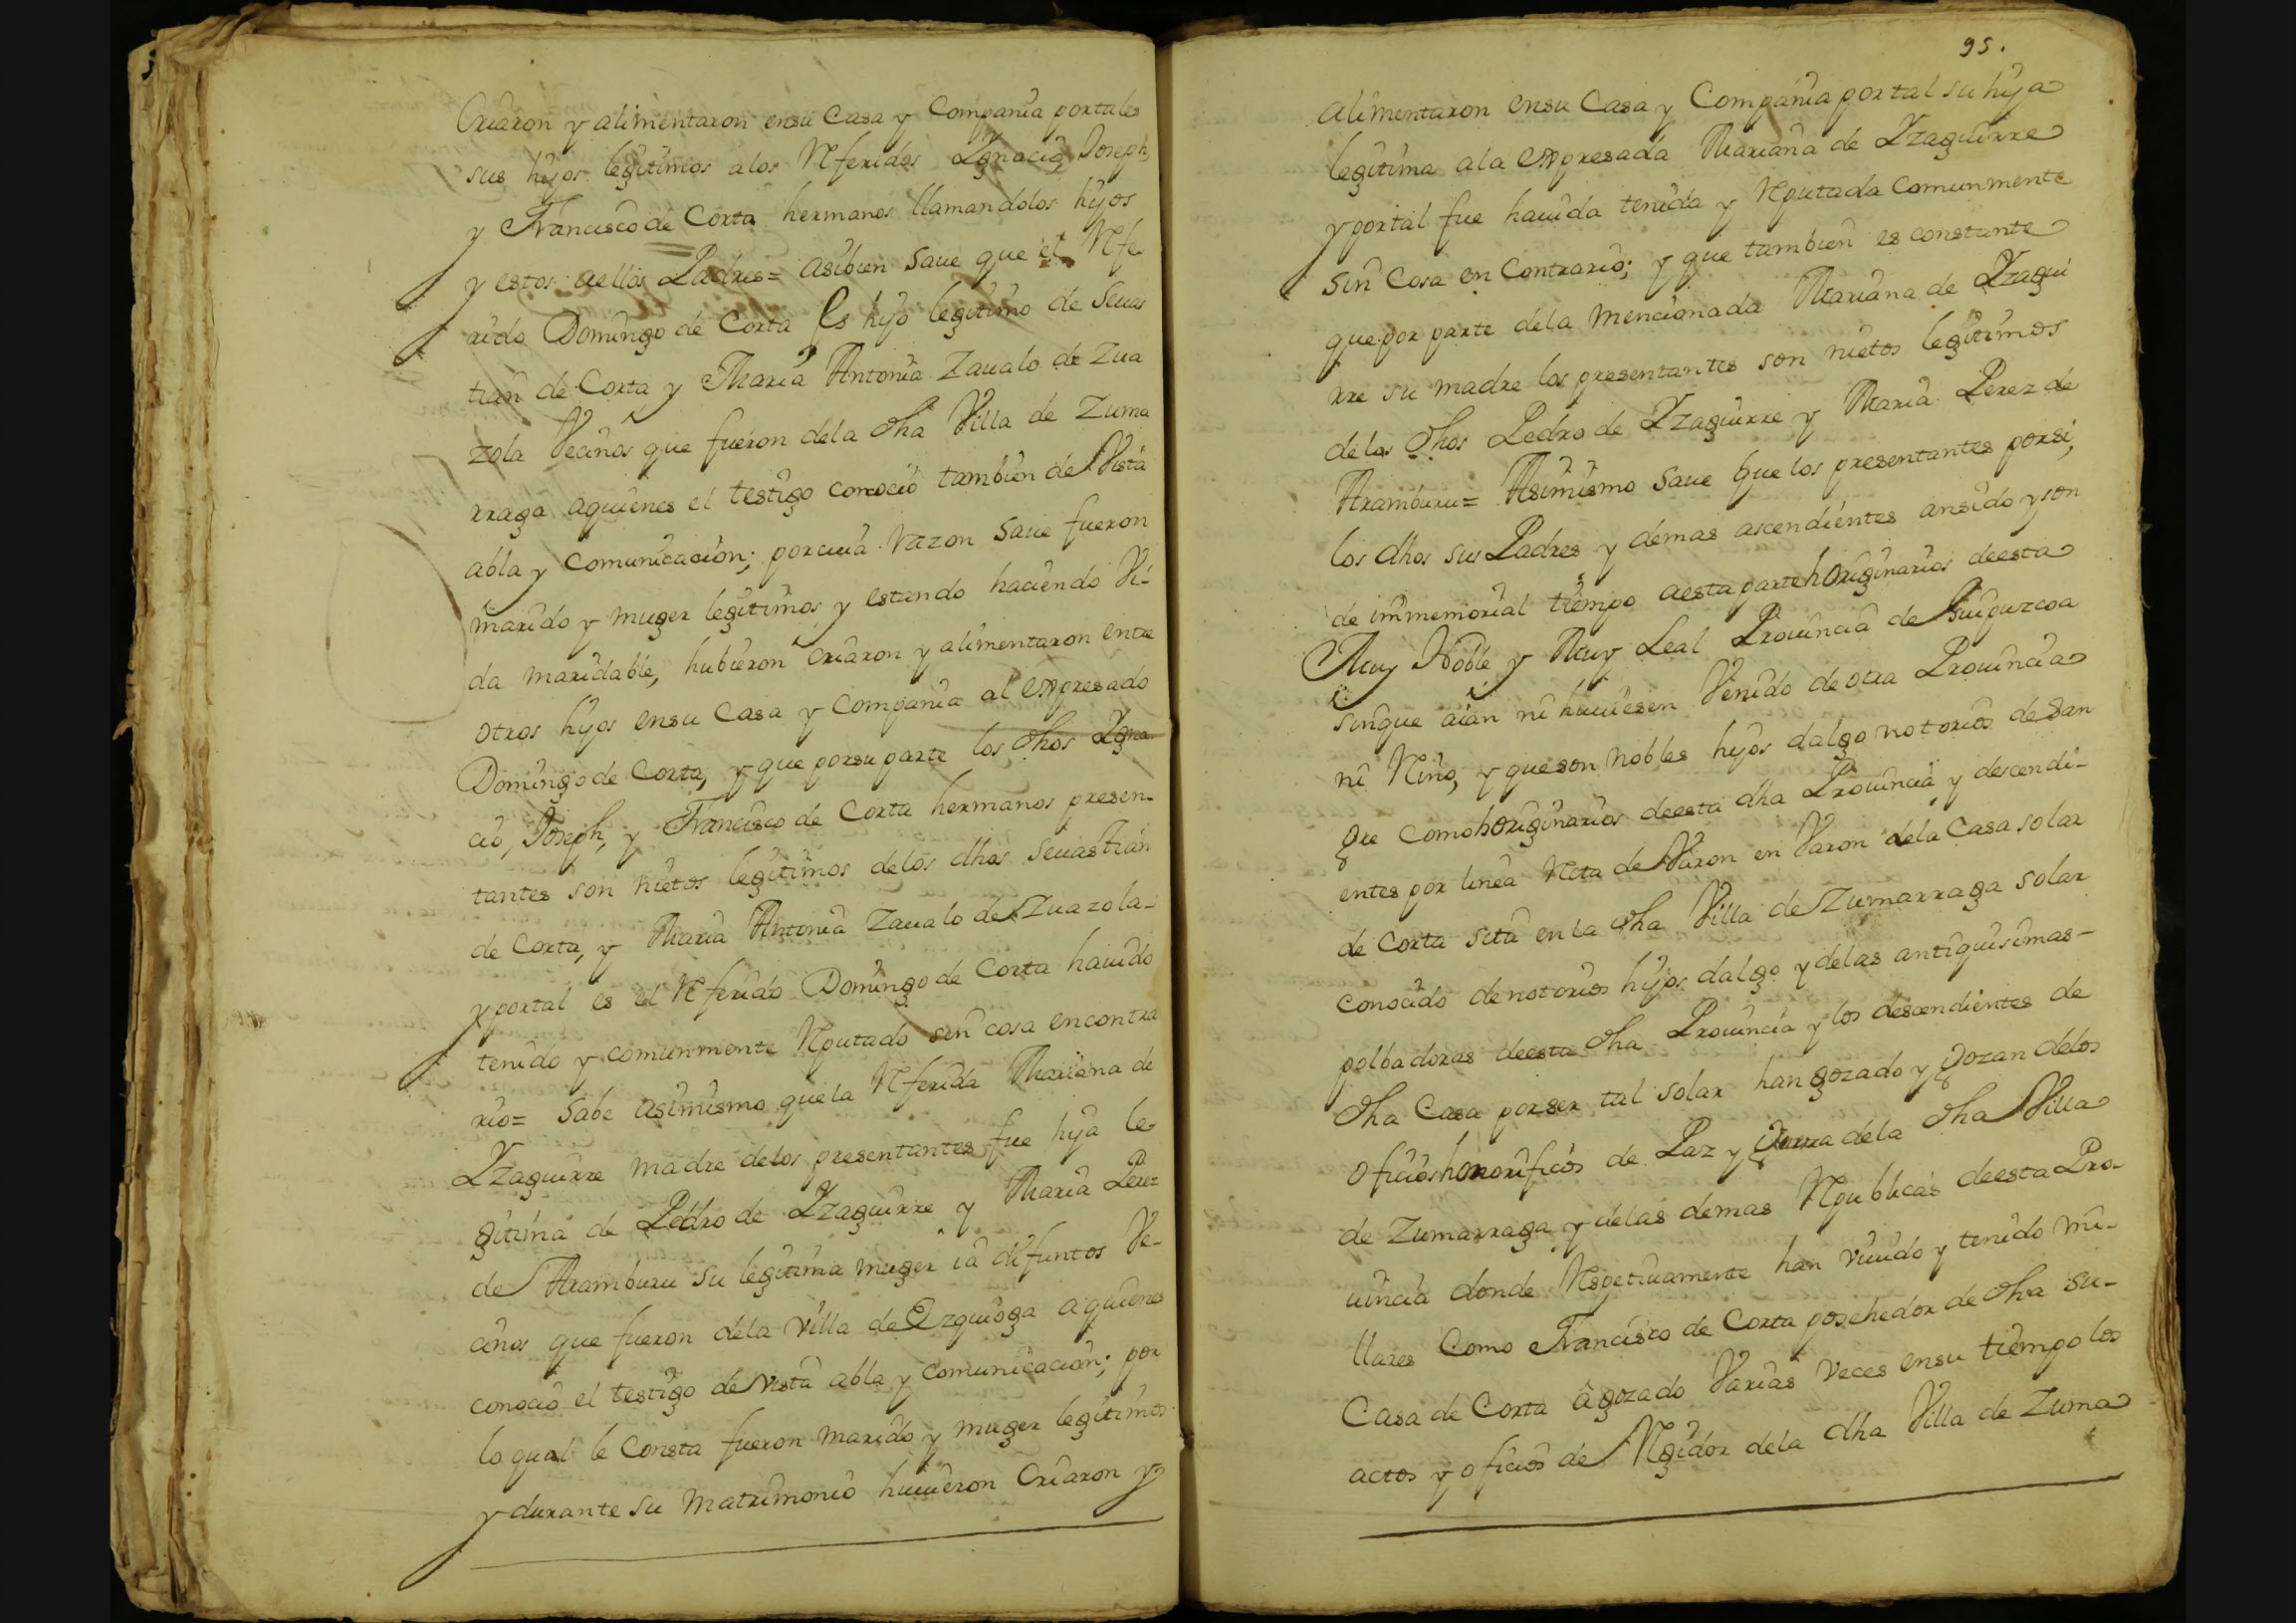 Criaron y alimentaron ensu Casa y Compania portales
sus hijos legitimos alos Referidos Ygnacio, Joseph,
y Francisco de Corta hermanos llamandolos hijos
y estos aellos Padres= asibien Saue que el Refe
rido Domingo de Corta Es hijo legitimo de Seuas
tian de Corta y Maria Antonia Zaualo de Zua
zola Vecinos que fueron dela dha Villa de Zuma
rraga aquienes el testigo conocio tambien de Vista
abla y Comunicacion; porcuia Razon Saue fueron
marido y muger legitimos, y estando haciendo Vi-
da maridable, hubieron criaron y alimentaron entre
otros hijos ensu Casa y Compania al expresado
Domingo de Corta, y que porsu parte los dhos Ygna
cio, Joseph, y Francisco de Corta hermanos presen-
tantes son nietos legitimos delos dhos Seuastian
de Corta, y Maria Antonia Zaualo de Zuazola-
y portal es el Referido Domingo de Corta hauido
tenido y comunmente Reputado sin cosa encontra
rio= Sabe asimismo quela Referida Mariana de
Yzaguirre madre delos presentantes fue hija le-
gitima de Pedro de Yzaguirre y Maria Perez
de Aramburu su legitima muger ia difuntos Ve-
cinos que fueron dela Villa de Ezquioga aquienes
conocio el testigo de vista abla y comunicacion; por
lo qual le Consta fueron marido y muger legitimos
y durante su Matrimonio huuieron Criaron y
95.
alimentaron ensu Casa y Compania por tal su hija
legitima ala expresada Mariana de Yzaguirre
y portal fue hauida tenida y Reputada Comunmente
sin Cosa en Contrario; y que tambien es constante
que por parte dela mencionada Mariana de Yzagui
rre su madre los presentantes son nietos legitimos
delos dhos Pedro de Yzaguirre y Maria Perez de
Aramburu= Asimismo Saue que los presentantes porsi,
los dhos sus Padres y demas ascendientes ansido y son
de immemorial tiempo aesta parte horiginarios deesta
Muy Noble y Muy Leal Prouincia de Guipuzcoa
sinque aian ni huuiesen Venido de otra Prouincia
ni Reino, y que son nobles hijos dalgo notorios de San
gre como horiginarios deesta dha Prouincia y descendi-
entes por linea Reta de Varon en Varon dela Casa solar
de Corta sita en la dha Villa de Zumarraga solar
conocido denotorios hijos dalgo y delas antiquisimas-
polbadoras deesta dha Prouincia y los descendientes de
dha Casa porser tal solar han gozado y gozan delos
oficios honorificos de Paz y Guerra dela dha Villa
de Zumarraga y delas demas Republicas deesta Pro-
uincia donde Respetiuamente han viuido y tenido mi-
llares Como Francisco de Corta poschedor de dha su-
Casa de Corta a gozado Varias Veces ensu tiempo los
actos y oficios de Regidor dela dha Villa de Zuma